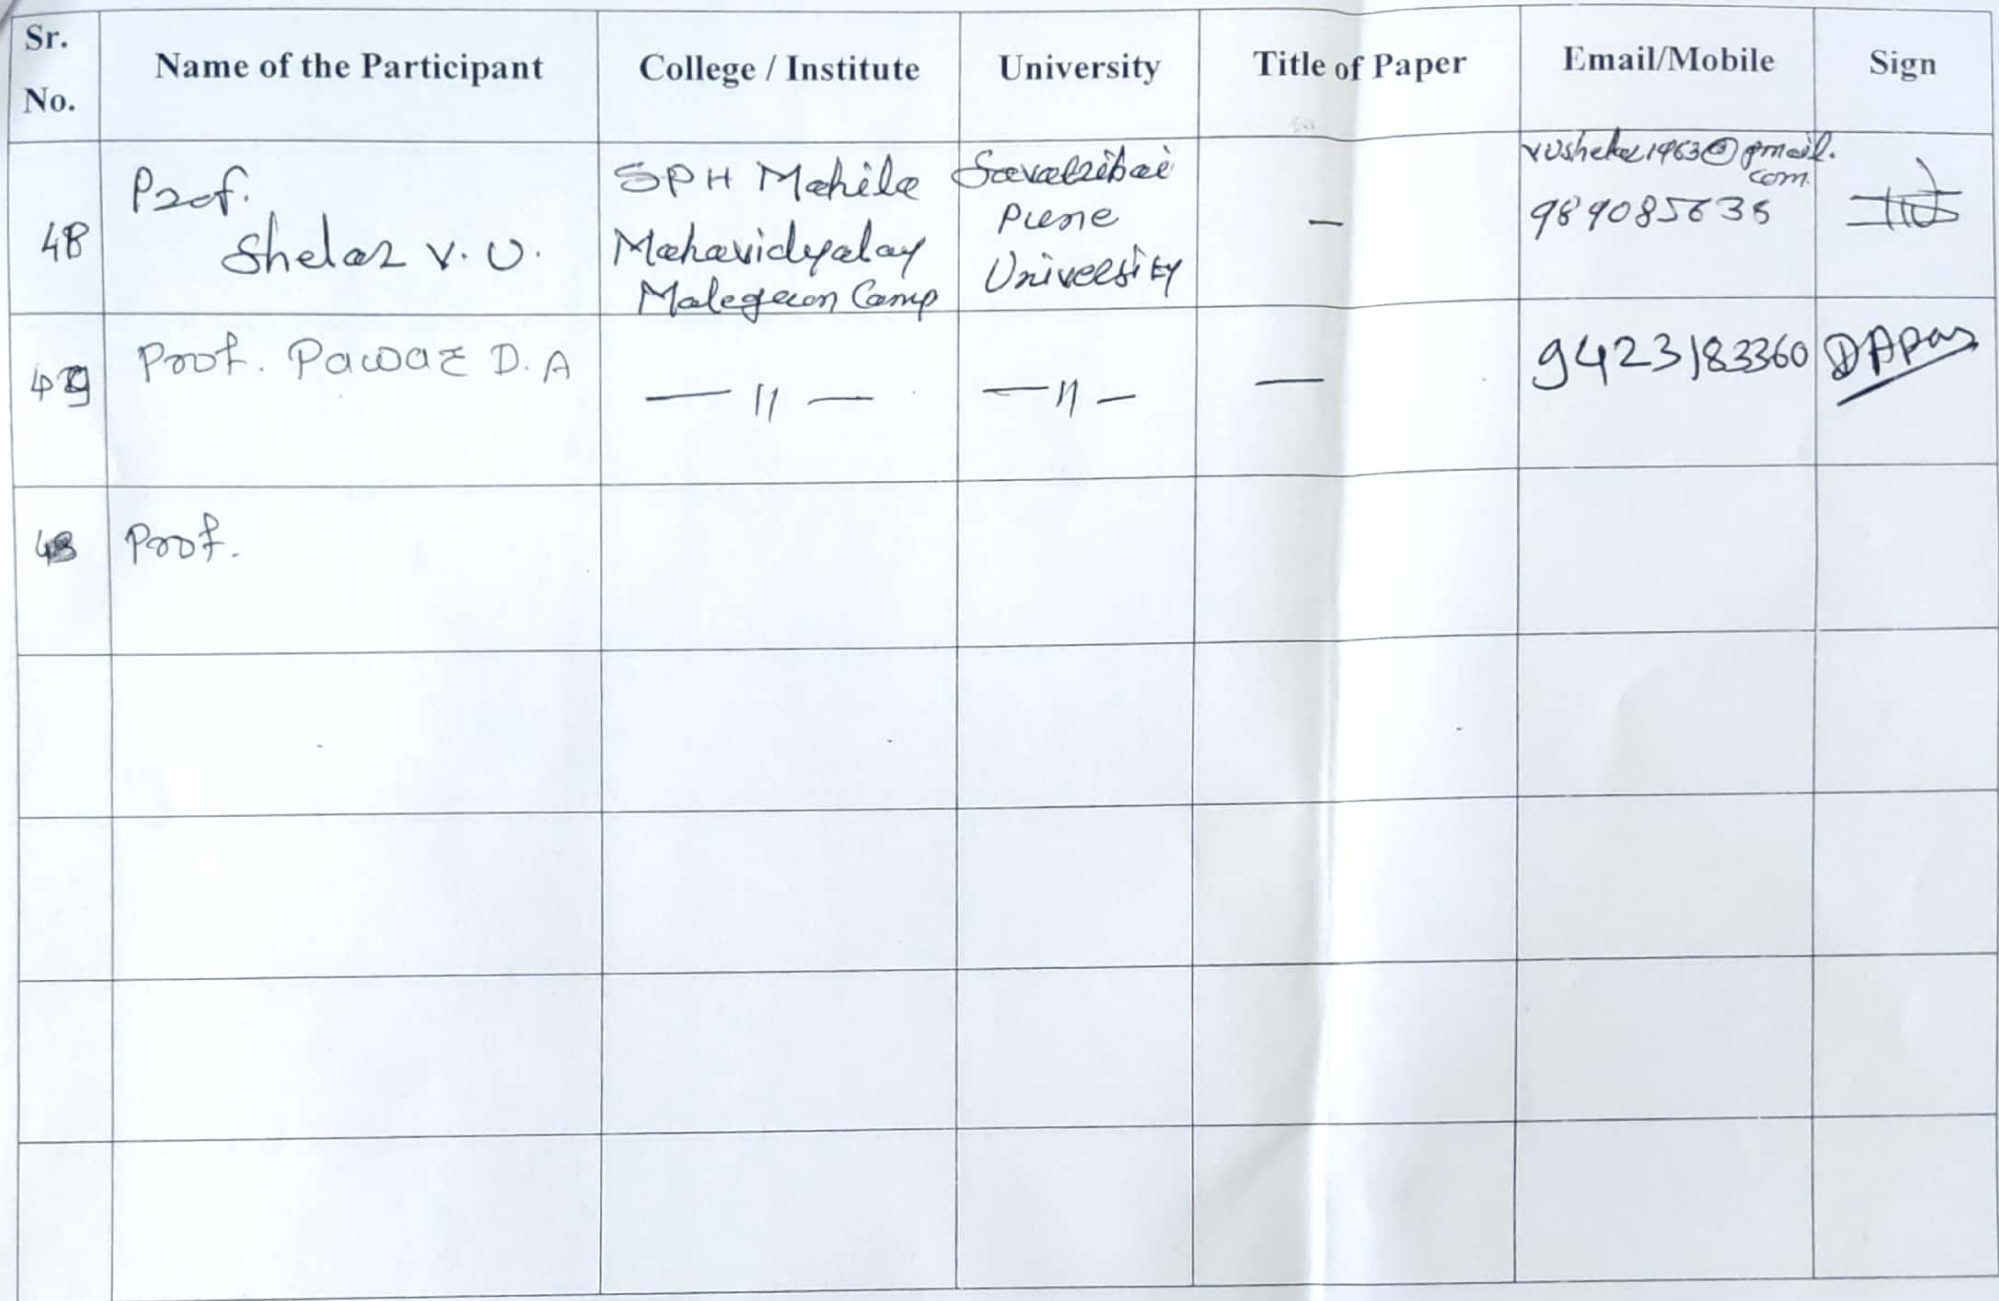 Sr. No. Name of the Participant College / Institute University Title of Paper Email/Mobile Sign
48
Prof.
Shelar V. U.
SPH Mahila
Mahavidyalay
Malegaon Camp
Savitribai
Pune
University
—
@gmail.
com
989085635
49
Prof. Pawar D. A
— 11 —
— 11 —
—
9423183360
DApas
Prof.